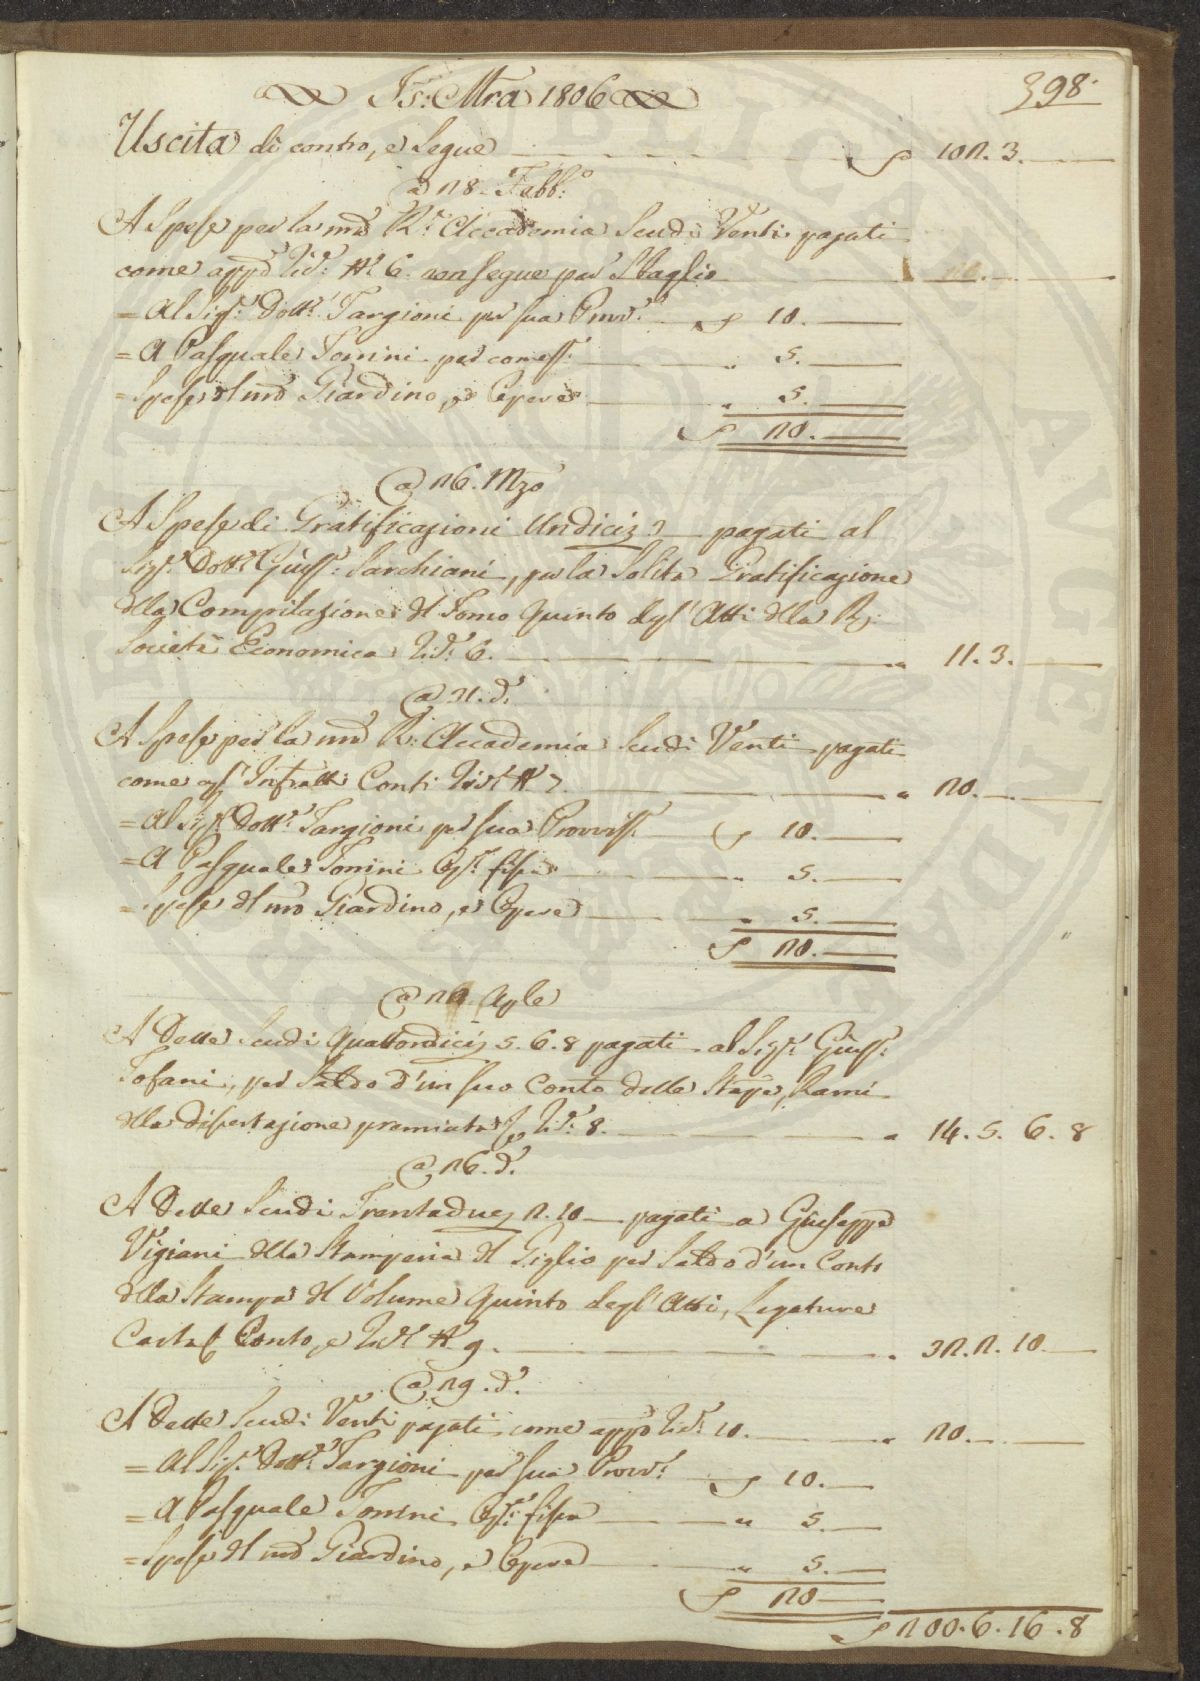 Is: Mra 1806
398.
Uscita di contro, e segue 102. 3.
a 28. Febb:º
A Spese per la md R: Accademia Scudi Venti pagati
come app.º Rid: Nº 6. non segue per Sbaglio 20.
= Al Sig:r Dott:r Targioni per sua Provv:ª 10.
= A Pasquale Tonini per comess: 5.
= Spese del md Giardino, ed Opere 5.
20.
a 26. Mzo
A Spese di Gratificazioni Undici 3 pagati al
Sig:r Dott:r Giuss: Sarchiani, per la Solita Gratificazione
dlla Compilazione dl Tomo Quinto degl' Atti dlla R:
Società Economica 6. 11. 3.
a 31. dº
A Spese per la md R: Accademia Scudi Venti pagati
come agl' Infratti Conti Nº 7 20.
= Al Sig:r Dott:r Targioni per sua Provviss: 10.
= A Pasquale Tonini 5.
= Spese dl md Giardino, ed Opere 5.
20.
a Aple
A Dette Scudi Quattordici 5. 6. 8 pagati al Sig:r Giuss:
Tofani, per Saldo d'un suo Conto delle Stape, Rami
dlla disertazione premiata 8. 14. 5. 6. 8
a 26. dº
A Dette Scudi Trentadue 2. 10 pagati a Giuseppe
Vigiani dlla Stamperia dl Giglio per Saldo d'un Conto
dlla Stampa dl Volume Quinto degl' Atti, Legature
Carta Conto, e Nº 9. 32. 2. 10
a 29. dº
A Dette Scudi Venti pagati come app.º 10. 20.
= Al Sig:r Dott:r Targioni per sua Provv:ª 10.
= A Pasquale Tonini 5.
= Spese dl md Giardino, ed Opere 5.
20
200. 6. 16. 8